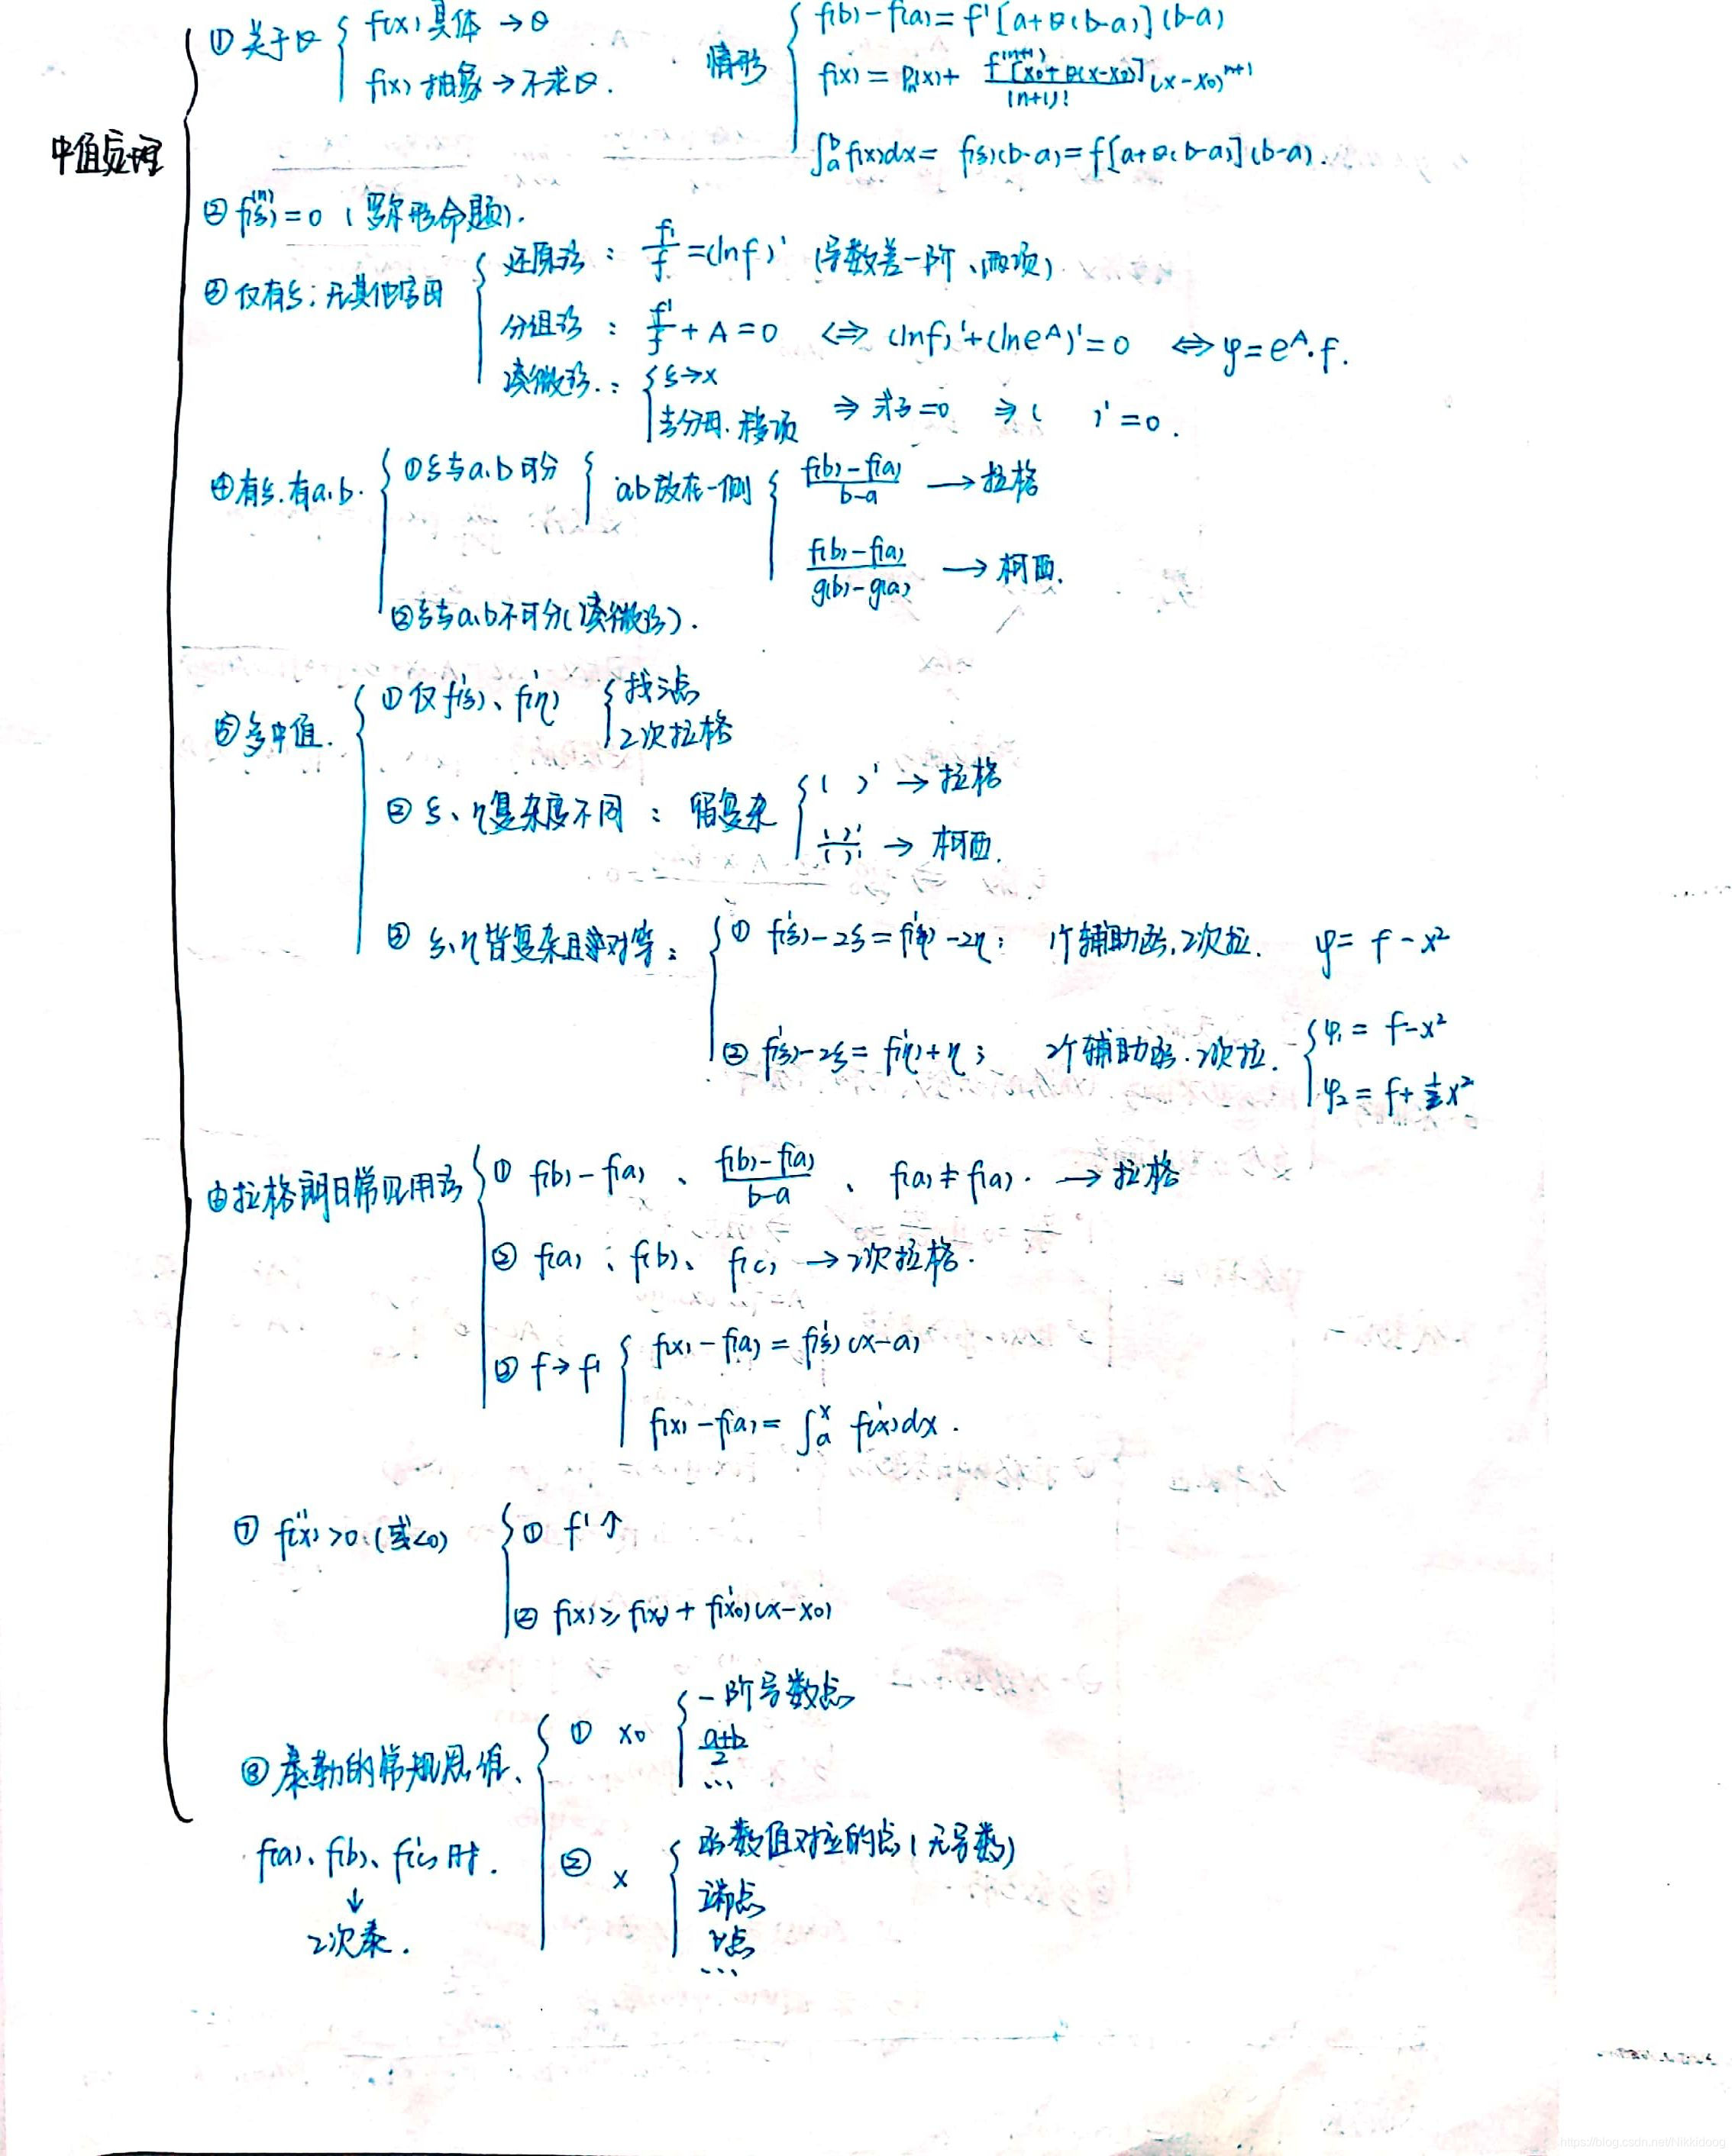 中值定理
① 关于θ { f(x)具体 → θ
f(x)抽象 → 不求θ.
情形 { f(b)-f(a)=f'[a+θ(b-a)](b-a)
f(x)=Pn(x)+ f^(n+1)[x0+θ(x-x0)]/(n+1)! (x-x0)^n+1
∫_a^b f(x)dx= f(ξ)(b-a)=f[a+θ(b-a)](b-a).
② f^(n)(ξ)=0 (罗尔形命题).
③ 仅有ξ; 无其他字母 { 还原法: f'/f=(lnf)' (导数差一阶、两项)
分组法: f'/f + A=0 ⇔ (lnf)'+(lne^A)'=0 ⇔ φ=e^A·f.
凑微法.: { ξ→x
去分母.移项 ⇒ 式子=0 ⇒ ( )'=0.
④有ξ.有a、b. { ①ξ与a、b可分 { ab放在一侧 { f(b)-f(a)/b-a → 拉格
f(b)-f(a)/g(b)-g(a) → 柯西.
②ξ与a、b不可分(凑微法).
⑤多中值. { ①仅f'(ξ)、f'(η) { 找三点
2次拉格
② ξ、η复杂度不同: 留复杂 { ( )' → 拉格
( )'/( )' → 柯西.
③ ξ、η皆复杂且对等: { ① f'(ξ)-2ξ=f'(η)-2η; 1个辅助函,2次拉. φ= f-x²
② f'(ξ)-2ξ=f'(η)+η; 2个辅助函.2次拉. { φ1= f-x²
φ2= f+½x²
⑥拉格朗日常见用法 { ① f(b)-f(a)、f(b)-f(a)/b-a、f(a)≠f(a). → 拉格
② f(a)、f(b)、f(c) → 2次拉格.
③ f→f' { f(x)-f(a)= f'(ξ)(x-a)
f(x)-f(a)= ∫_a^x f'(x)dx.
⑦ f''(x)>0.(或<0) { ① f'↑
② f(x)≥f(x0)+f'(x0)(x-x0)
⑧泰勒的常规思维、 { ① x0 { 一阶导数点
a+b/2
...
f(a)、f(b)、f'(c)时. ② x { 函数值对应的点(无导数)
↓ 端点
2次泰. 点
...
https://blog.csdn.net/Nikkidoop